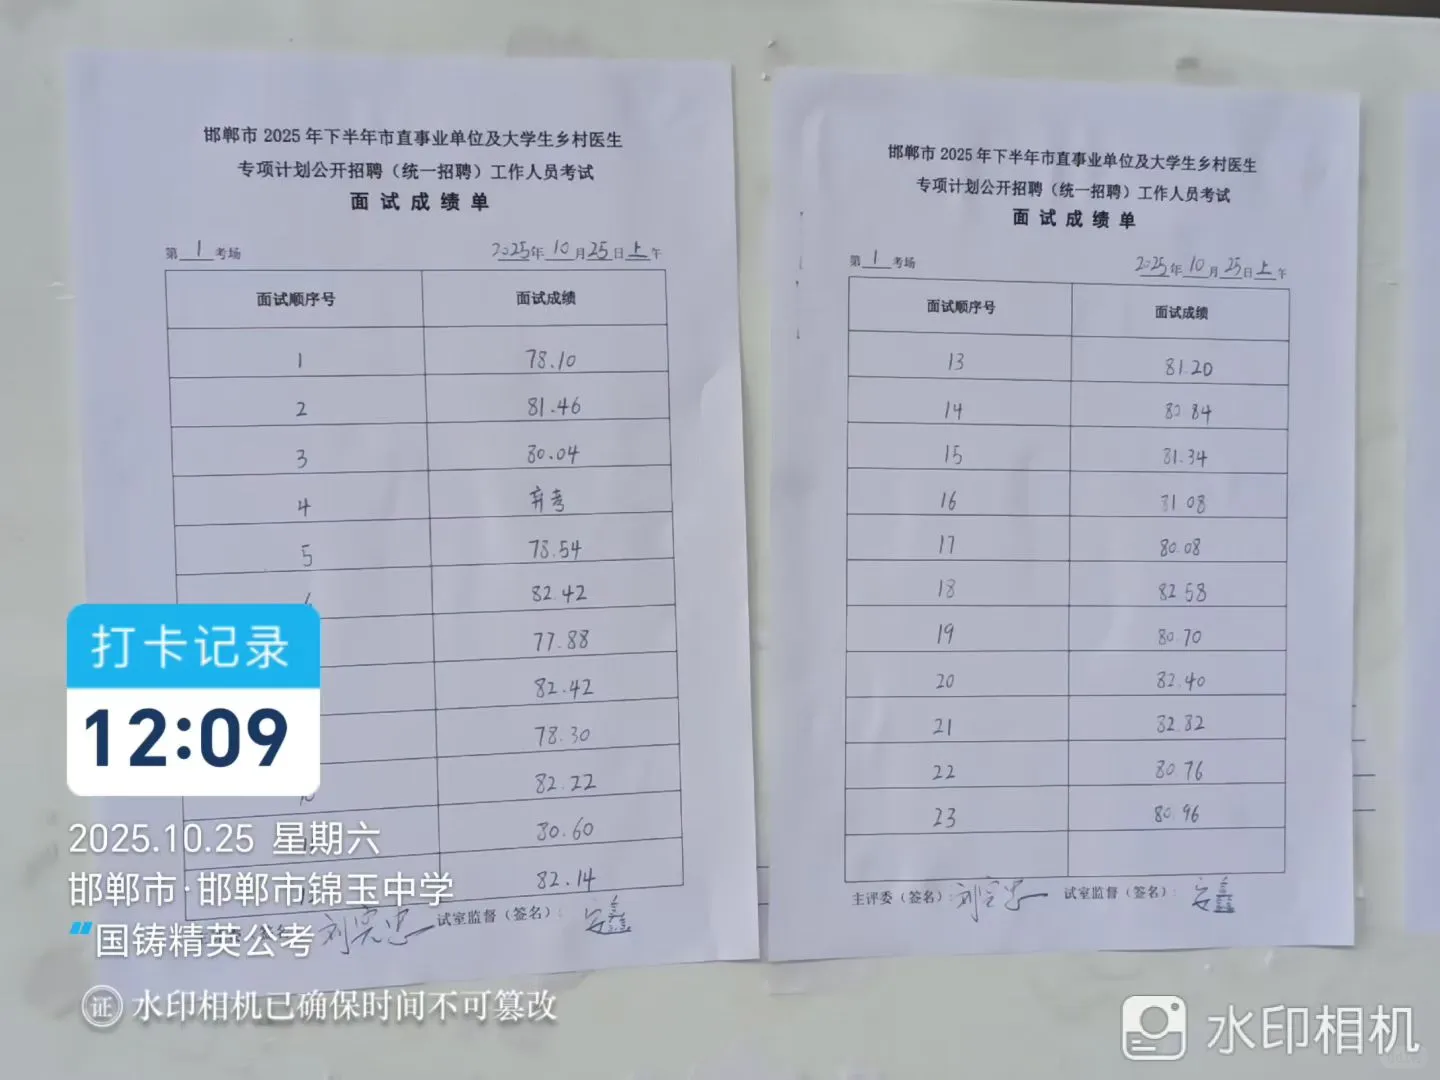 邯郸市 2025 年下半年市直事业单位及大学生乡村医生
专项计划公开招聘（统一招聘）工作人员考试
面试成绩单
第 1 考场 2025年 10 月 25 日 上 午
面试顺序号 面试成绩
1 78.10
2 81.46
3 80.04
4 弃考
5 78.54
82.42
77.88
82.42
78.30
10 82.22
80.60
82.14
刘宪忠 试室监督（签名）：
邯郸市 2025 年下半年市直事业单位及大学生乡村医生
专项计划公开招聘（统一招聘）工作人员考试
面试成绩单
第 1 考场 2025 年 10 月 25 日 上 午
面试顺序号 面试成绩
13 81.20
14 80.84
15 81.34
16 81.08
17 80.08
18 82.58
19 80.70
20 82.40
21 82.82
22 80.76
23 80.96
主评委（签名）：刘宪忠 试室监督（签名）：
打卡记录
12:09
2025.10.25 星期六
邯郸市·邯郸市锦玉中学
国铸精英公考
证 水印相机已确保时间不可篡改
水印相机